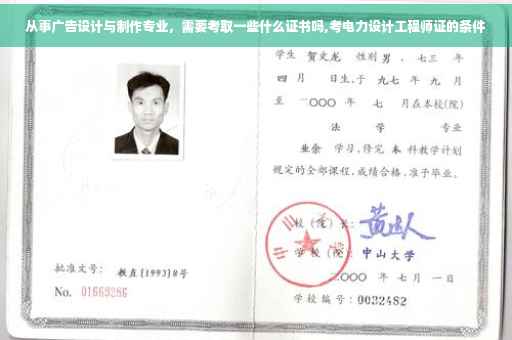 从事广告设计与制作专业，需要考取一些什么证书吗,考电力设计工程师证的条件
学生 贺文龙 性别 男 、七三 年
四 月 日生,于 九七 年 九 月
至 二〇〇〇 年 七 月在本校(院)
法 学 专业
业余 学习,修完 本 科教学计划
规定的全部课程,成绩合格,准予毕业。
校 (院) 长:
学 校 (院): 中山大学
批准文号: 教直(1993)8号
二〇〇〇 年 七 月 一 日
No. 01669286
学校编号: 0032482